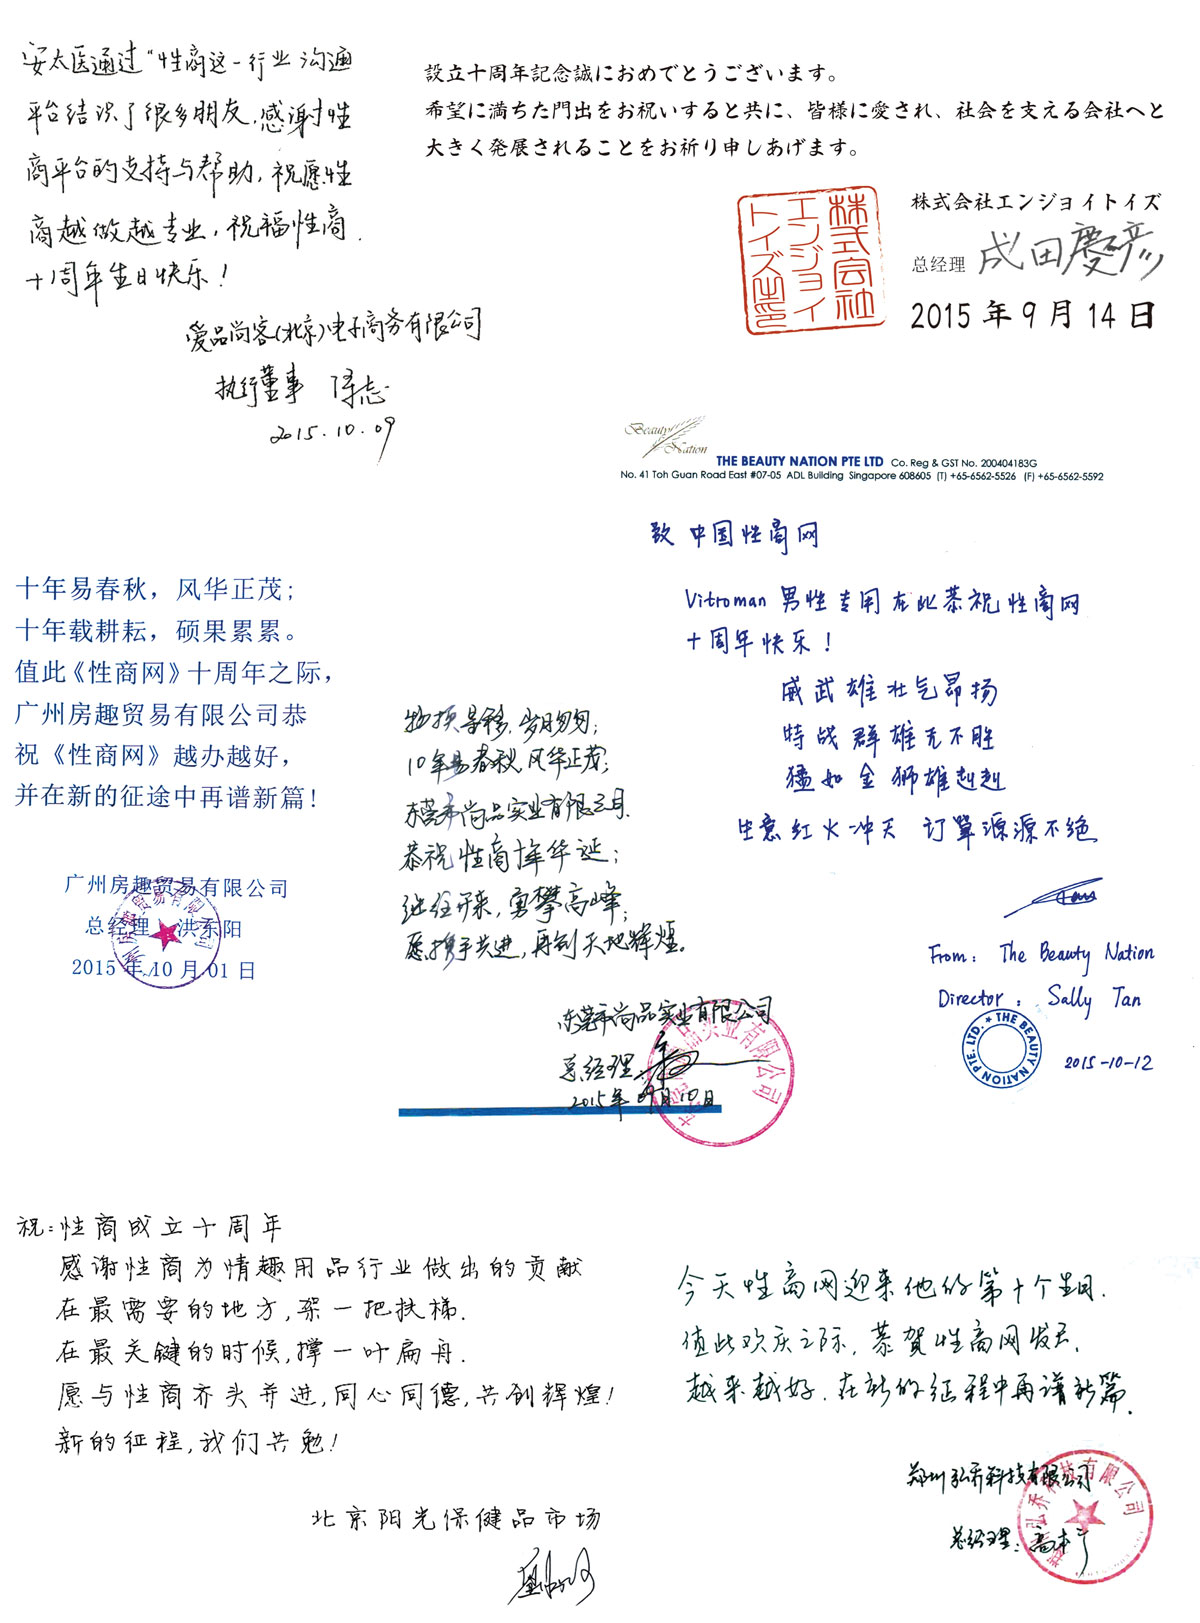 安太医通过“性商这一行业沟通
平台结识了很多朋友,感谢性
商平台的支持与帮助,祝愿性
商越做越专业,祝福性商.
十周年生日快乐!
爱品尚客(北京)电子商务有限公司
执行董事
2015.10.09
設立十周年記念誠におめでとうございます。
希望に満ちた門出をお祝いすると共に、皆様に愛され、社会を支える会社へと
大きく発展されることをお祈り申しあげます。
株式会社エンジョイトイズ
总经理 成田慶彦
2015年9月14日
株式会社
エンジョイ
トイズ
Beauty
Nation
THE BEAUTY NATION PTE LTD Co. Reg & GST No. 200404183G
No. 41 Toh Guan Road East #07-05 ADL Building Singapore 608605 (T) +65-6562-5526 (F) +65-6562-5592
致 中国性商网
Vitroman 男性专用在此恭祝性商网
十周年快乐!
威武雄壮气昂扬
特战群雄无不胜
猛如金狮雄赳赳
生意红火冲天 订单源源不绝
From: The Beauty Nation
Director: Sally Tan
THE BEAUTY NATION PTE. LTD. ★
2015-10-12
十年易春秋，风华正茂;
十年载耕耘，硕果累累。
值此《性商网》十周年之际，
广州房趣贸易有限公司恭
祝《性商网》越办越好，
并在新的征途中再谱新篇!
广州房趣贸易有限公司
总经理 洪东阳
2015年10月01日
物换星移,岁月匆匆;
10年易春秋,风华正茂;
东莞市尚品实业有限公司.
恭祝性商十年华诞;
继往开来,勇攀高峰;
愿携手共进,再创天地辉煌。
东莞市尚品实业有限公司
总经理
2015年09月10日
祝:性商成立十周年
感谢性商为情趣用品行业做出的贡献
在最需要的地方,架一把扶梯.
在最关键的时候,撑一叶扁舟.
愿与性商齐头并进,同心同德,共创辉煌!
新的征程,我们共勉!
北京阳光保健品市场
今天性商网迎来他的第十个生日.
值此欢庆之际,恭贺性商网发展
越来越好.在新的征程中再谱新篇.
郑州弘乔科技有限公司
总经理: